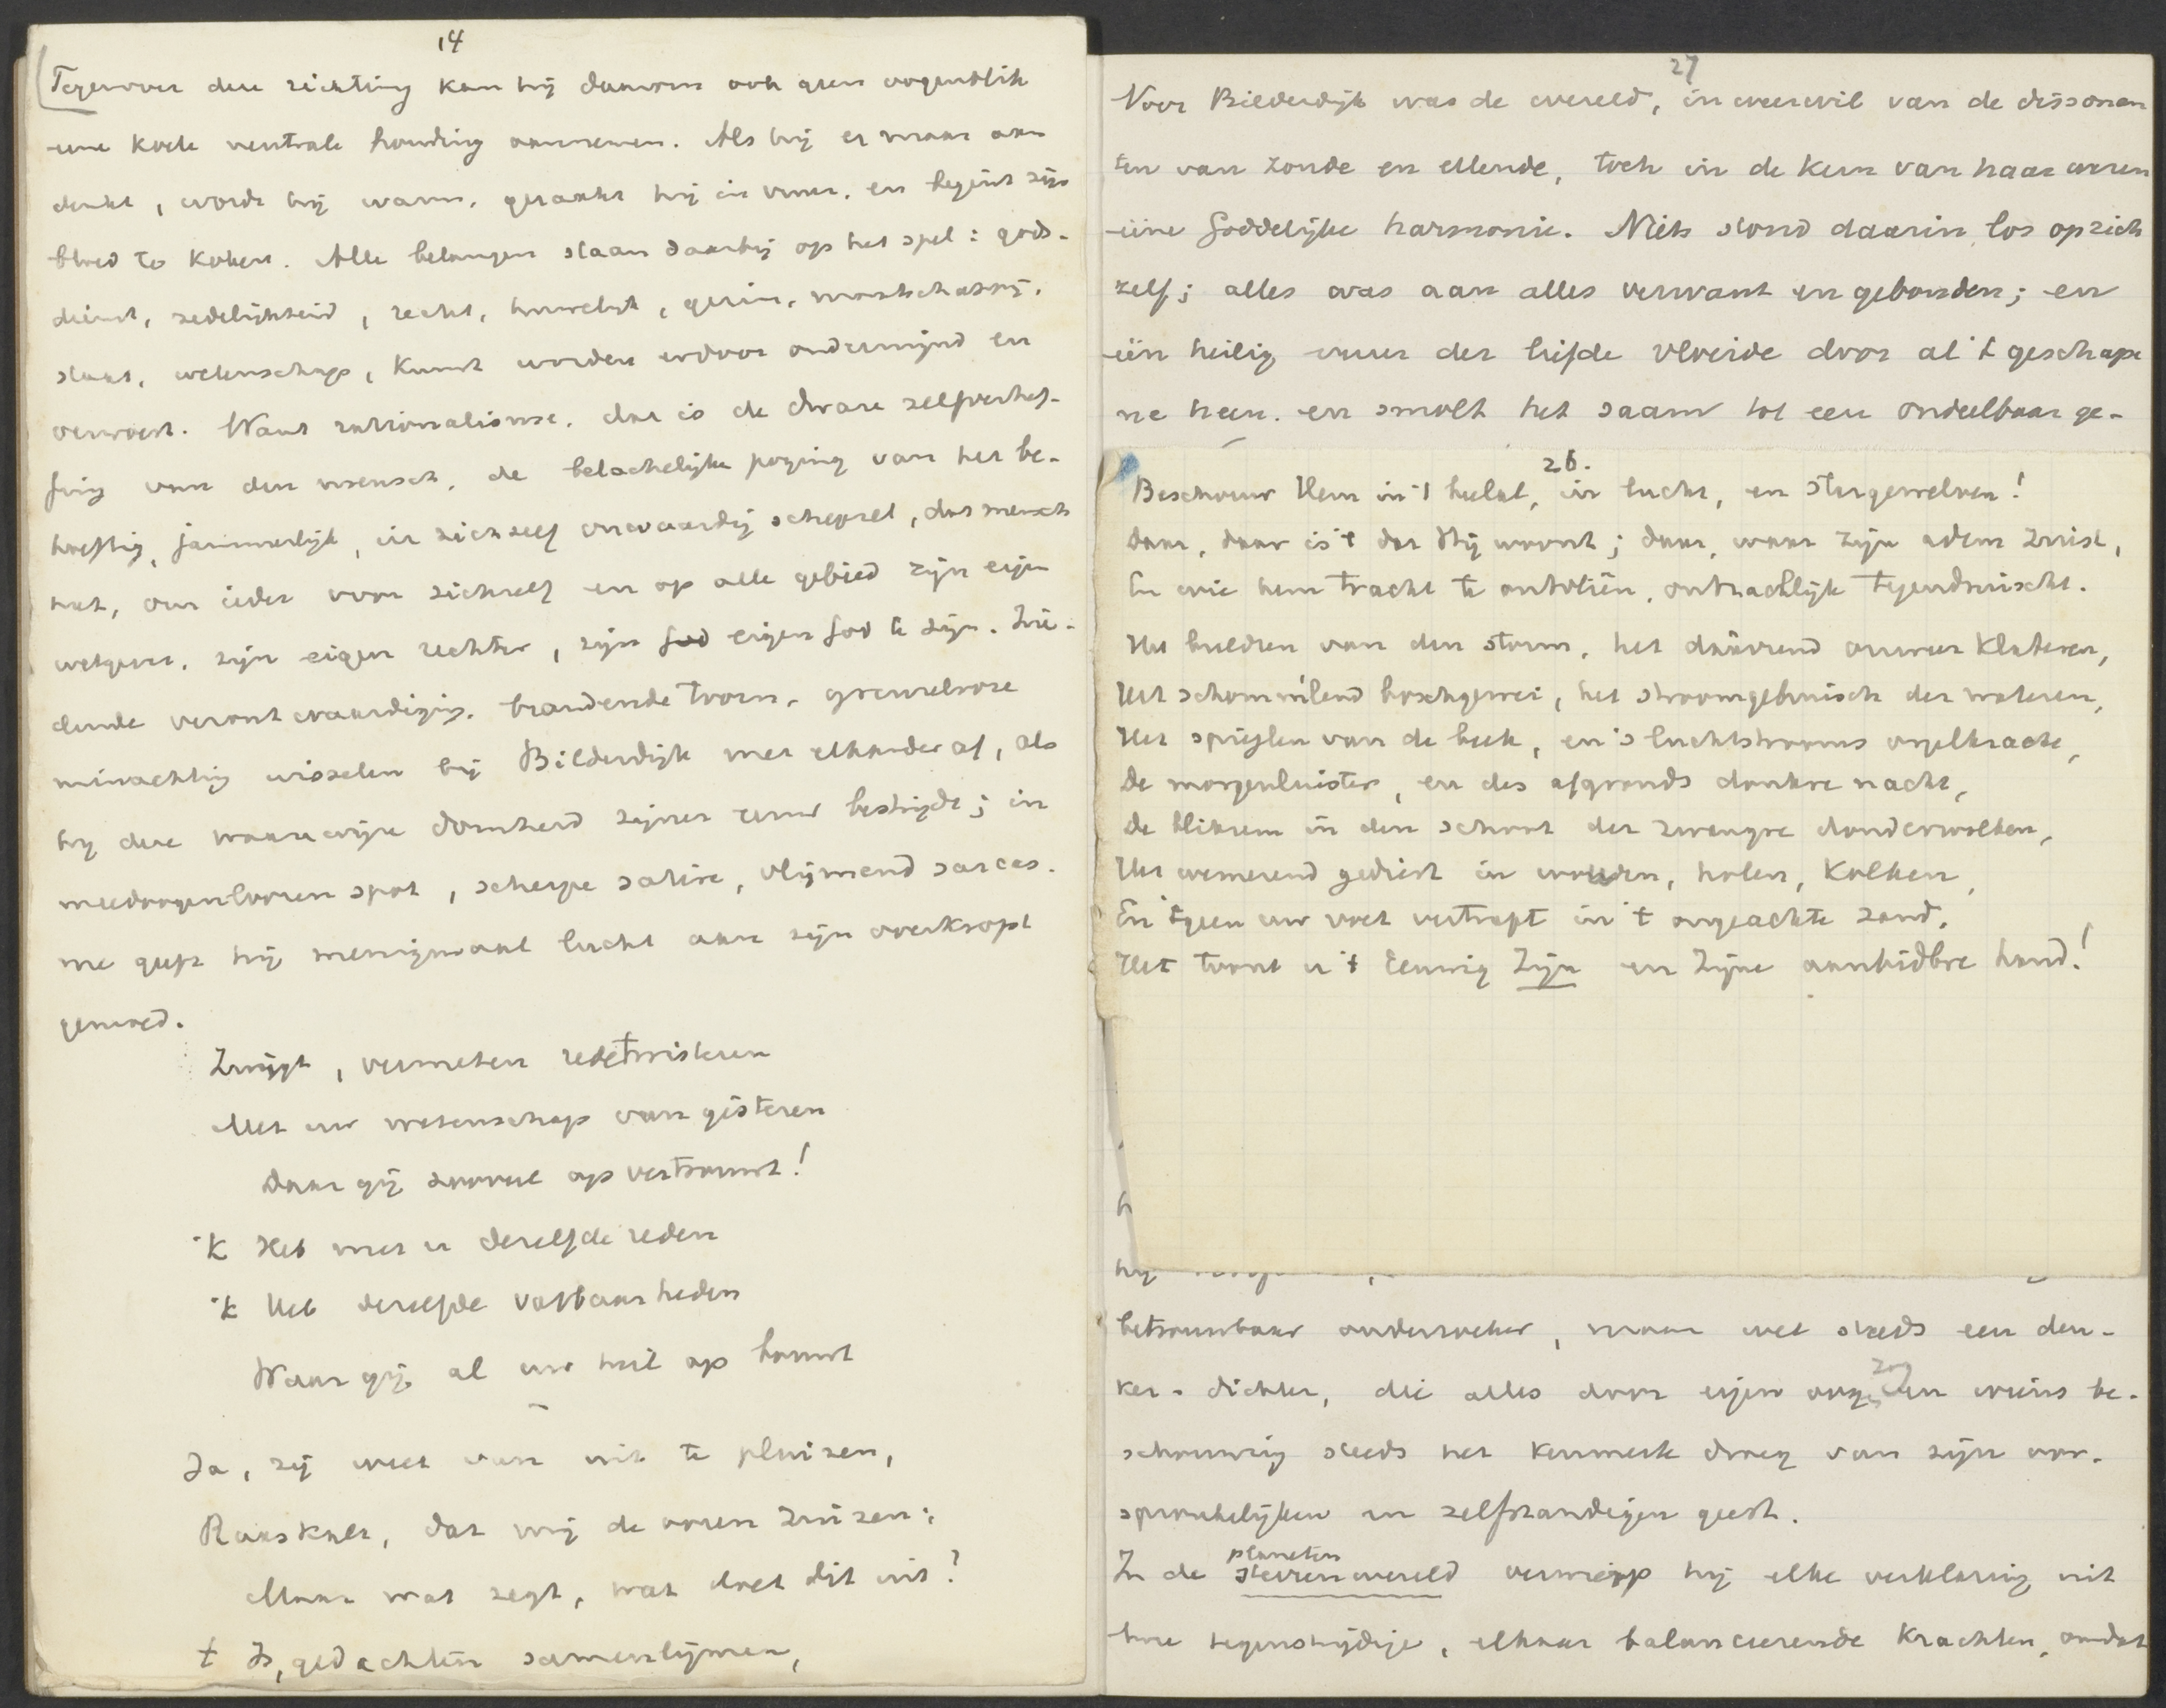 14
Tegenover deze richting kan hij daarom ook geen oogenblik
eene koele neutrale houding aannemen. Als hij er maar aan
denkt, wordt hij warm, geraakt hij in vuur, en begint zijn
bloed te koken. Alle belangen staan daarbij op het spel: gods-
dienst, zedelijkheid, recht, huwelijk, gezin, maatschappij,
staat, wetenschap, kunst worden erdoor ondermijnd en
verwoest. Want rationalisme, dat is de dwaze zelfverhef-
fing van den mensch, de belachelijke poging van het be-
hoeftig, jammerlijk, in zichzelf onwaardig schepsel, dat mensch
heet, om ieder voor zichzelf en op alle gebied zijn eigen
wetgever, zijn eigen rechter, zijn god eigen God te zijn. Zie-
dende verontwaardiging, brandende toorn, grenzelooze
minachting wisselen bij Bilderdijk met elkander af, als
hij deze waanwijze domheid zijner eeuw bestrijdt; in
meedoogenloozen spot, scherpe satire, vlijmend sarcas-
me geeft hij menigmaal lucht aan zijn overkropt
gemoed.
Zwijgt, vermeten redetwisteren
Met uw wetenschap van gisteren
Daar gij zooveel op vertrouwt!
'k Heb met u dezelfde reden
'k Heb dezelfde vatbaarheden
Waar gij al uw heil op bouwt
Ja, zij weet van uit te pluizen,
Raaskalt, dat mij de ooren zuizen;
Maar wat zegt, wat doet dit uit?
't Is, gedachten samenlijmen,
27
Voor Bilderdijk was de wereld, in weerwil van de dissonan
ten van zonde en ellende, toch in de kern van haar wezen
ééne Goddelijke harmonie. Niets stond daarin los op zich
zelf; alles was aan alles verwant en gebonden; en
één heilig vuur der liefde vloeide door al 't geschape
ne heen, en smolt het saam tot een ondeelbaar ge-
26.
Beschouw Hem in 't heelal, in lucht, en stergewelven!
Daar, daar is 't dat Hij woont; daar, waar Zijn adem zuist,
En wie hem tracht te ontvliên, ontzachlijk tegendruischt.
Het buldren van den storm, het daavrend onweer klateren,
Het schommlend boschgewei, het stroomgebruisch der wateren,
Het spieglen van de beek, en 's luchtstrooms orgelkracht,
De morgenluister, en des afgronds donkre nacht,
De bliksem in den schoot der zwangre donderwolken,
Het wemerend gediert in wouden, holen, kolken,
En 't geen uw voet vertrapt in 't ongeachte zand,
Het toont u 't Eeuwig Zijn en Zijne aanbidbre hand!
h
hij
betrouwbaar onderzoeker, maar wel steeds een den-
ker-dichter, die alles door eigen oogen zag en wiens be-
schouwing steeds het kenmerk droeg van zijn oor-
spronkelijken en zelfstandigen geest.
In de planeten sterrenwereld verwierp hij elke verklaring uit
twee tegenstrijdige, elkaar balanceerende krachten, omdat